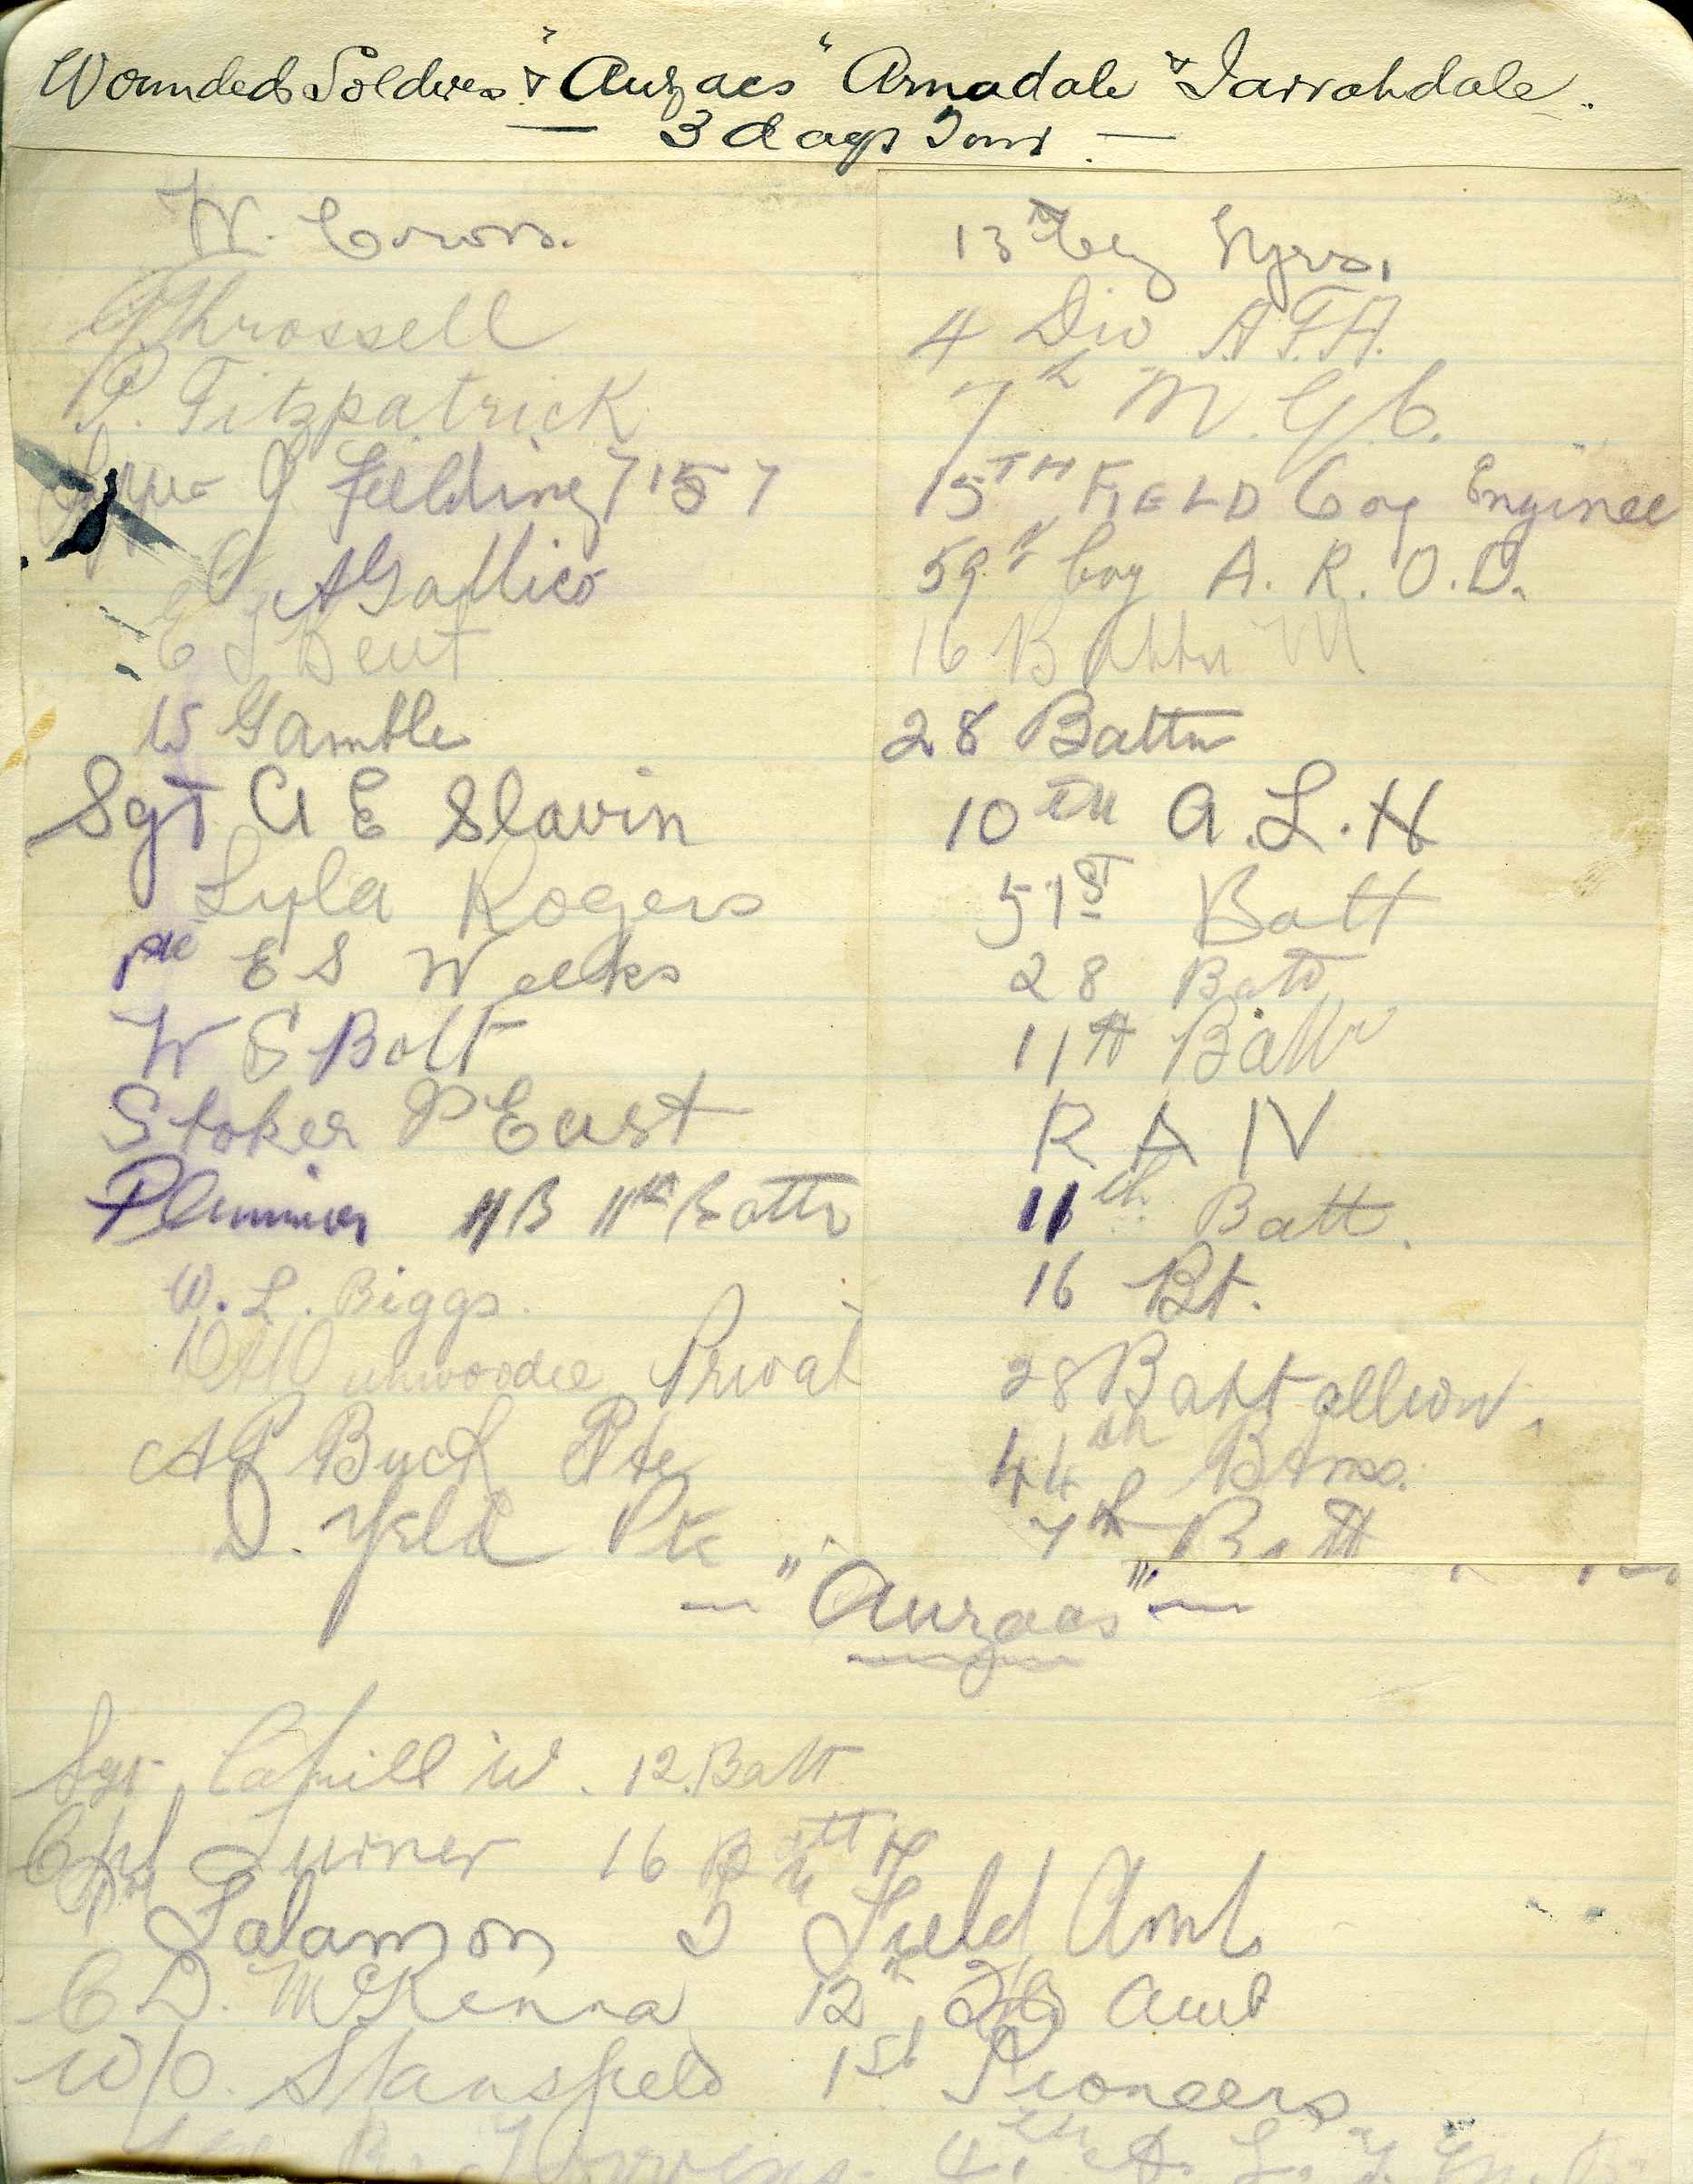 Wounded Soldiers & "Anzacs" Armadale & Jarrahdale.
— 3 days Tour. —
W. 13th Coy Engrs.
Throssell 4 Div A.F.A.
P. Fitzpatrick 7th M.G.C.
Sapper G Feilding 7157 15TH FIELD Coy Enginee
A Gallico 59th Coy A. R. O. D.
E S Bent 16 Battn
Gamble 28 Battn
Sgt A E Slavin 10th A.L.H
Lyla Rogers 51ST Batt
pte E S Weelks 28 Batt
W S Bolt 11th Battn
Stoker P East R A N
Plummer 11th Battn 11th Batt.
W. L. Biggs. 16 Bt.
Privat 28 Battallion.
A P Buck Pte 44th
D. Yeld Pte 7th Batt
— "Anzacs" —
Sgt Cahill W. 12. Batt
Cpl Turner 16 Battn
Salamon 2 Field Amb
C D. McKenna 12th Fld Amb
W/O. Stansfield 1st Pioneers